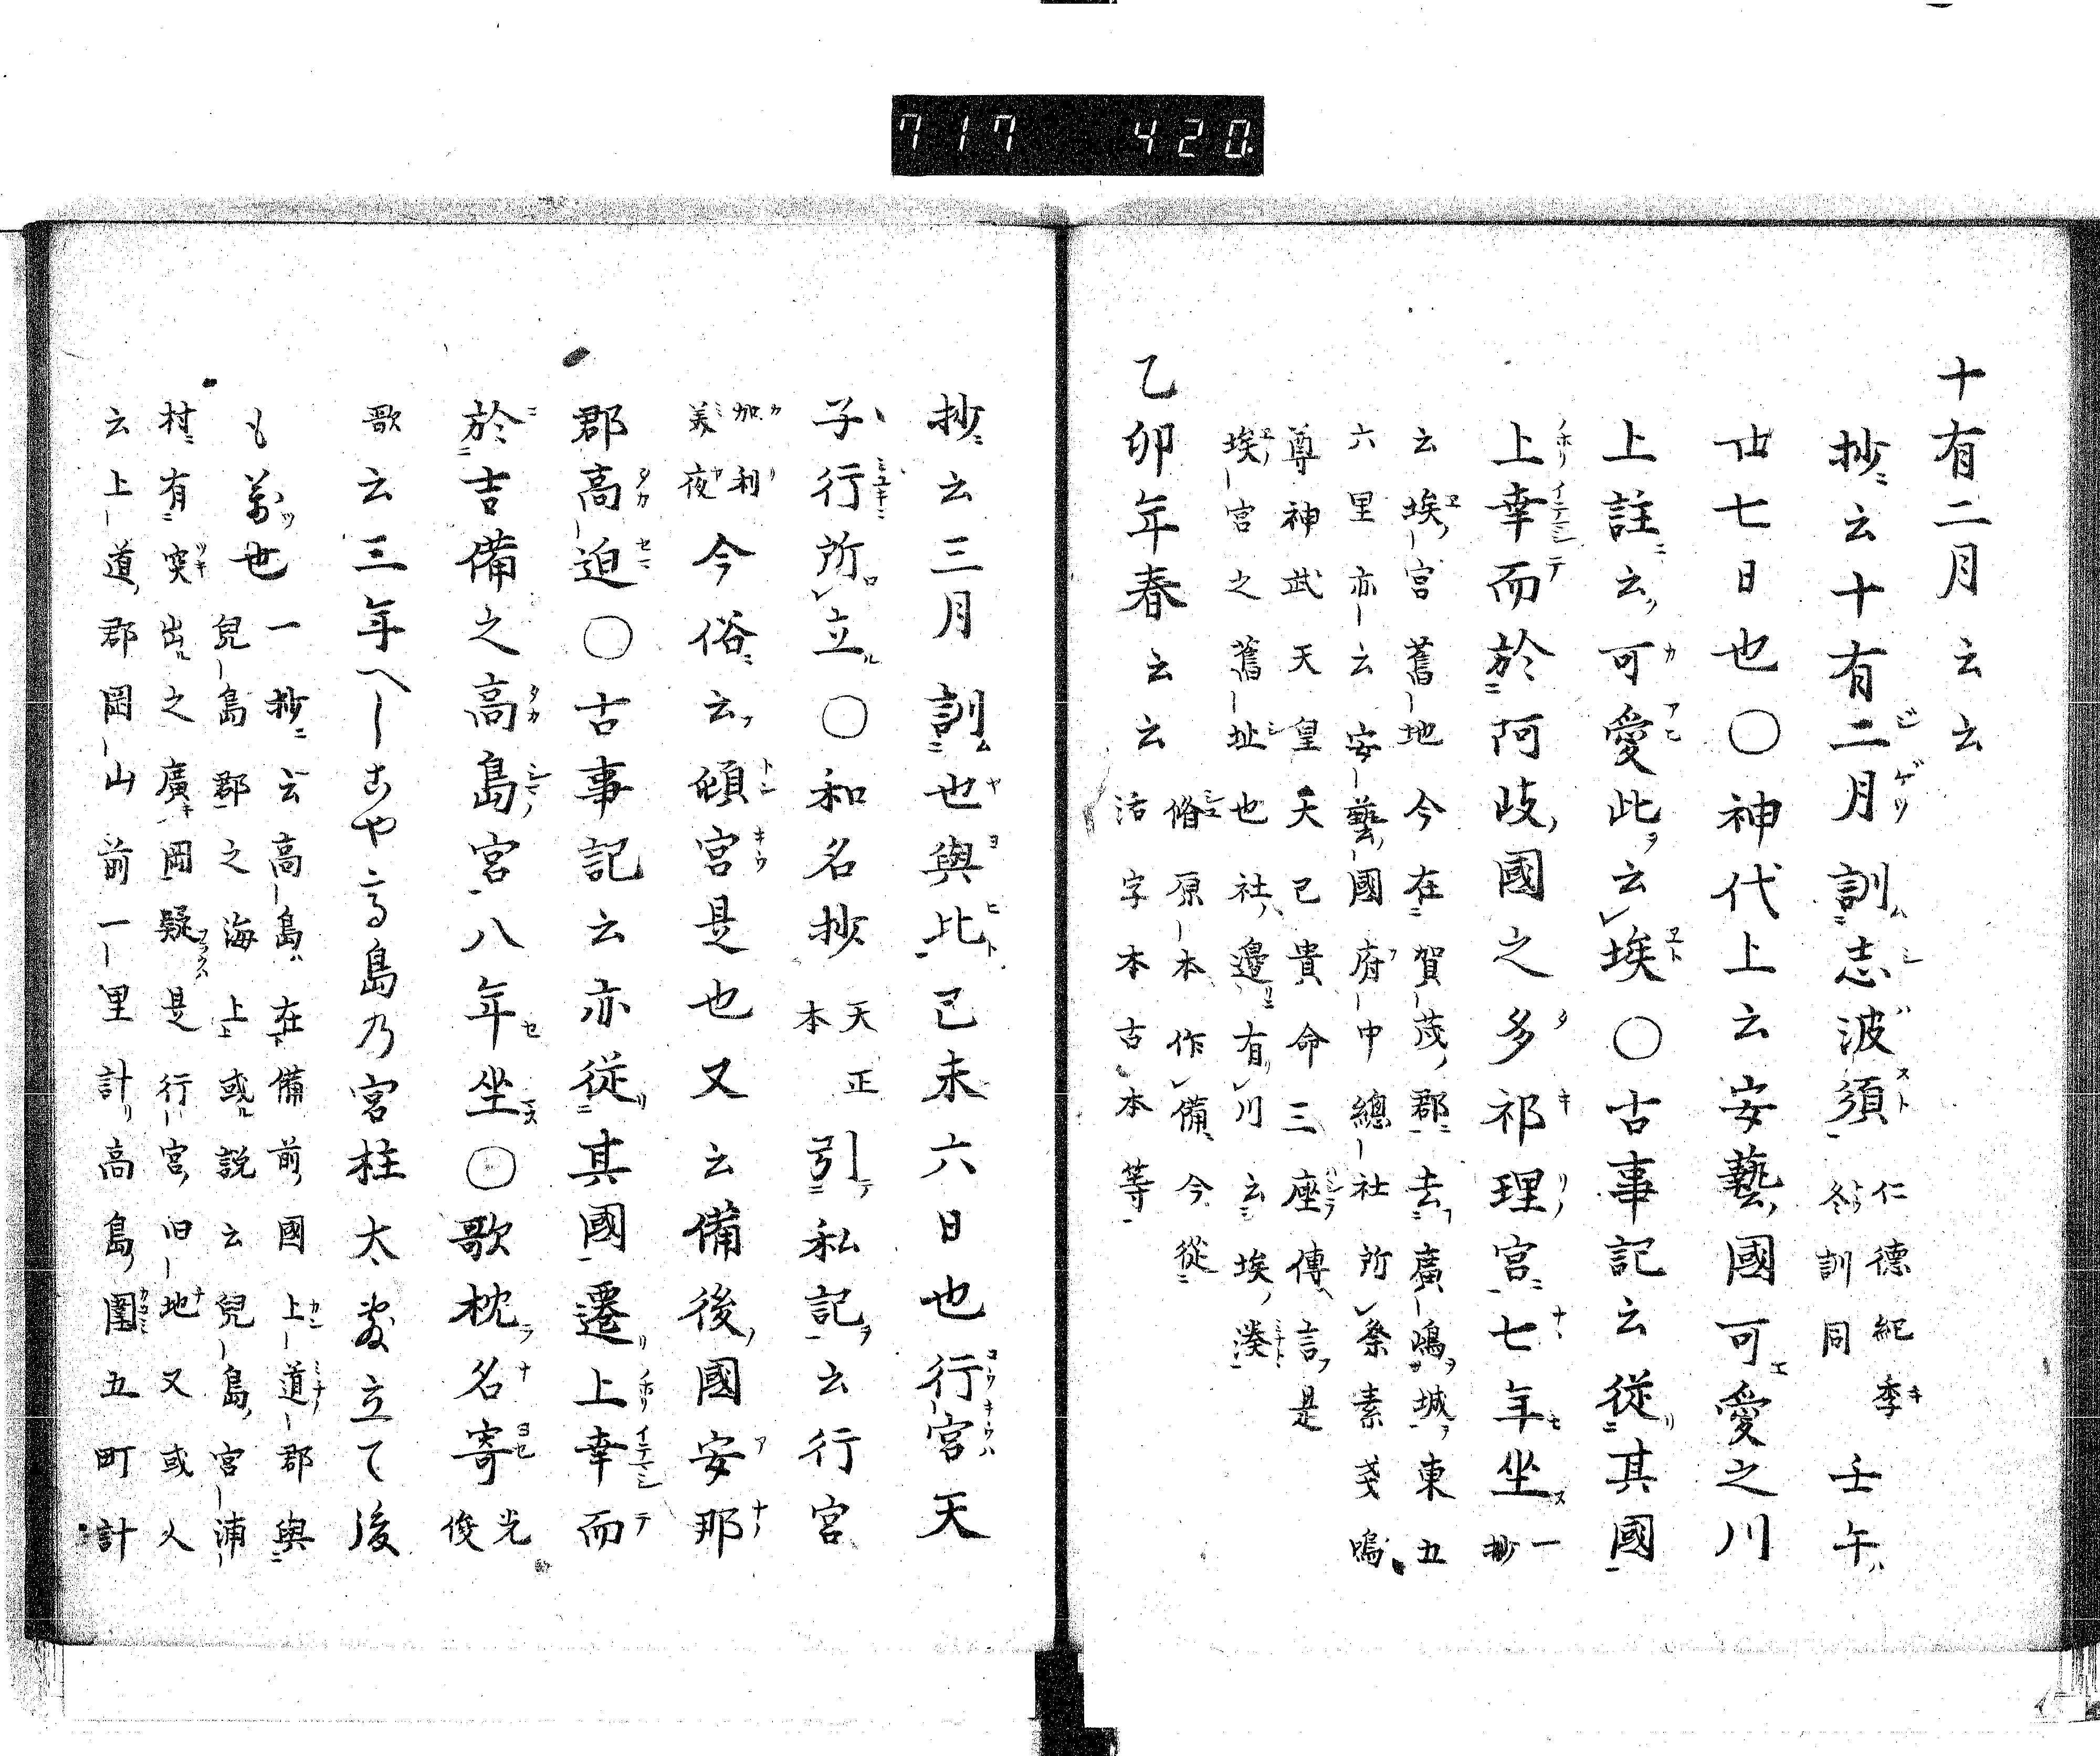 717 420.
十有二月云云
抄云十有二月訓志波須 仁德紀季冬訓同 壬午
廿七日也〇神代上云安藝國可愛之川
上註云可愛此云埃〇古事記云從其國
上幸而於阿岐國之多祁理宮七年坐 一抄
云埃宮舊地今在賀茂郡去廣嶋城東五
六里亦云安藝國府中總社所祭素戔嗚
尊神武天皇大己貴命三座傳言是
埃宮之舊址也社邊有川云埃湊
乙卯年春云云 脩原本作備今從
活字本古本等
抄云三月訓也與比己未六日也行宮天
子行所立〇和名抄 天正本 引私記云行宮
加利美夜今俗云頓宮是也又云備後國安那
郡高迫〇古事記云亦從其國遷上幸而
於吉備之高島宮八年坐〇歌枕名寄 光俊
歌云三年へしこや高島乃宮柱太敷立て後
も萬世 一抄云高島在備前國上道郡與
兒島郡之海上或說云兒島宮浦
村有突出之廣岡疑是行宮旧地又或人
云上道郡岡山前一里計高島圍五町計